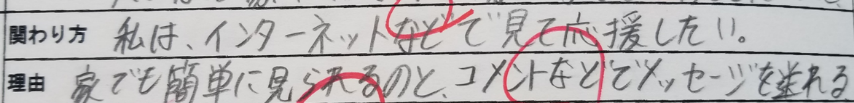 関わり方 私は、インターネットなどで見て応援したい。
理由 家でも簡単に見られるのと、コメントなどでメッセージを送れる